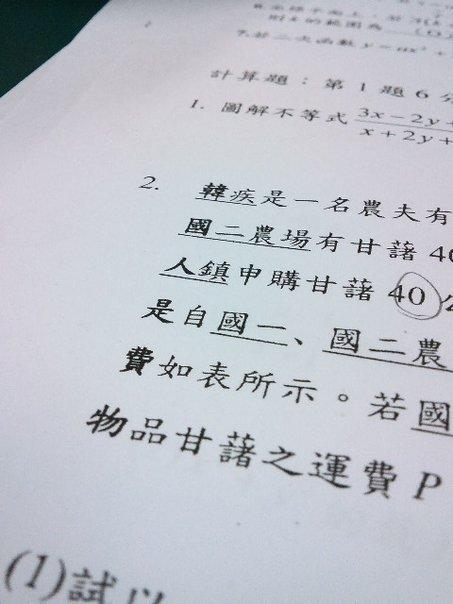 則 k 的範圍為
7.若二次函數 y = ax² +
計算題：第 1 題 6 分
1. 圖解不等式 3x − 2y +
x + 2y +
2. 韓疾是一名農夫有
國二農場有甘藷 40
人鎮申購甘藷 40 公
是自國一、國二農
費如表所示。若國
物品甘藷之運費 P
(1)試以